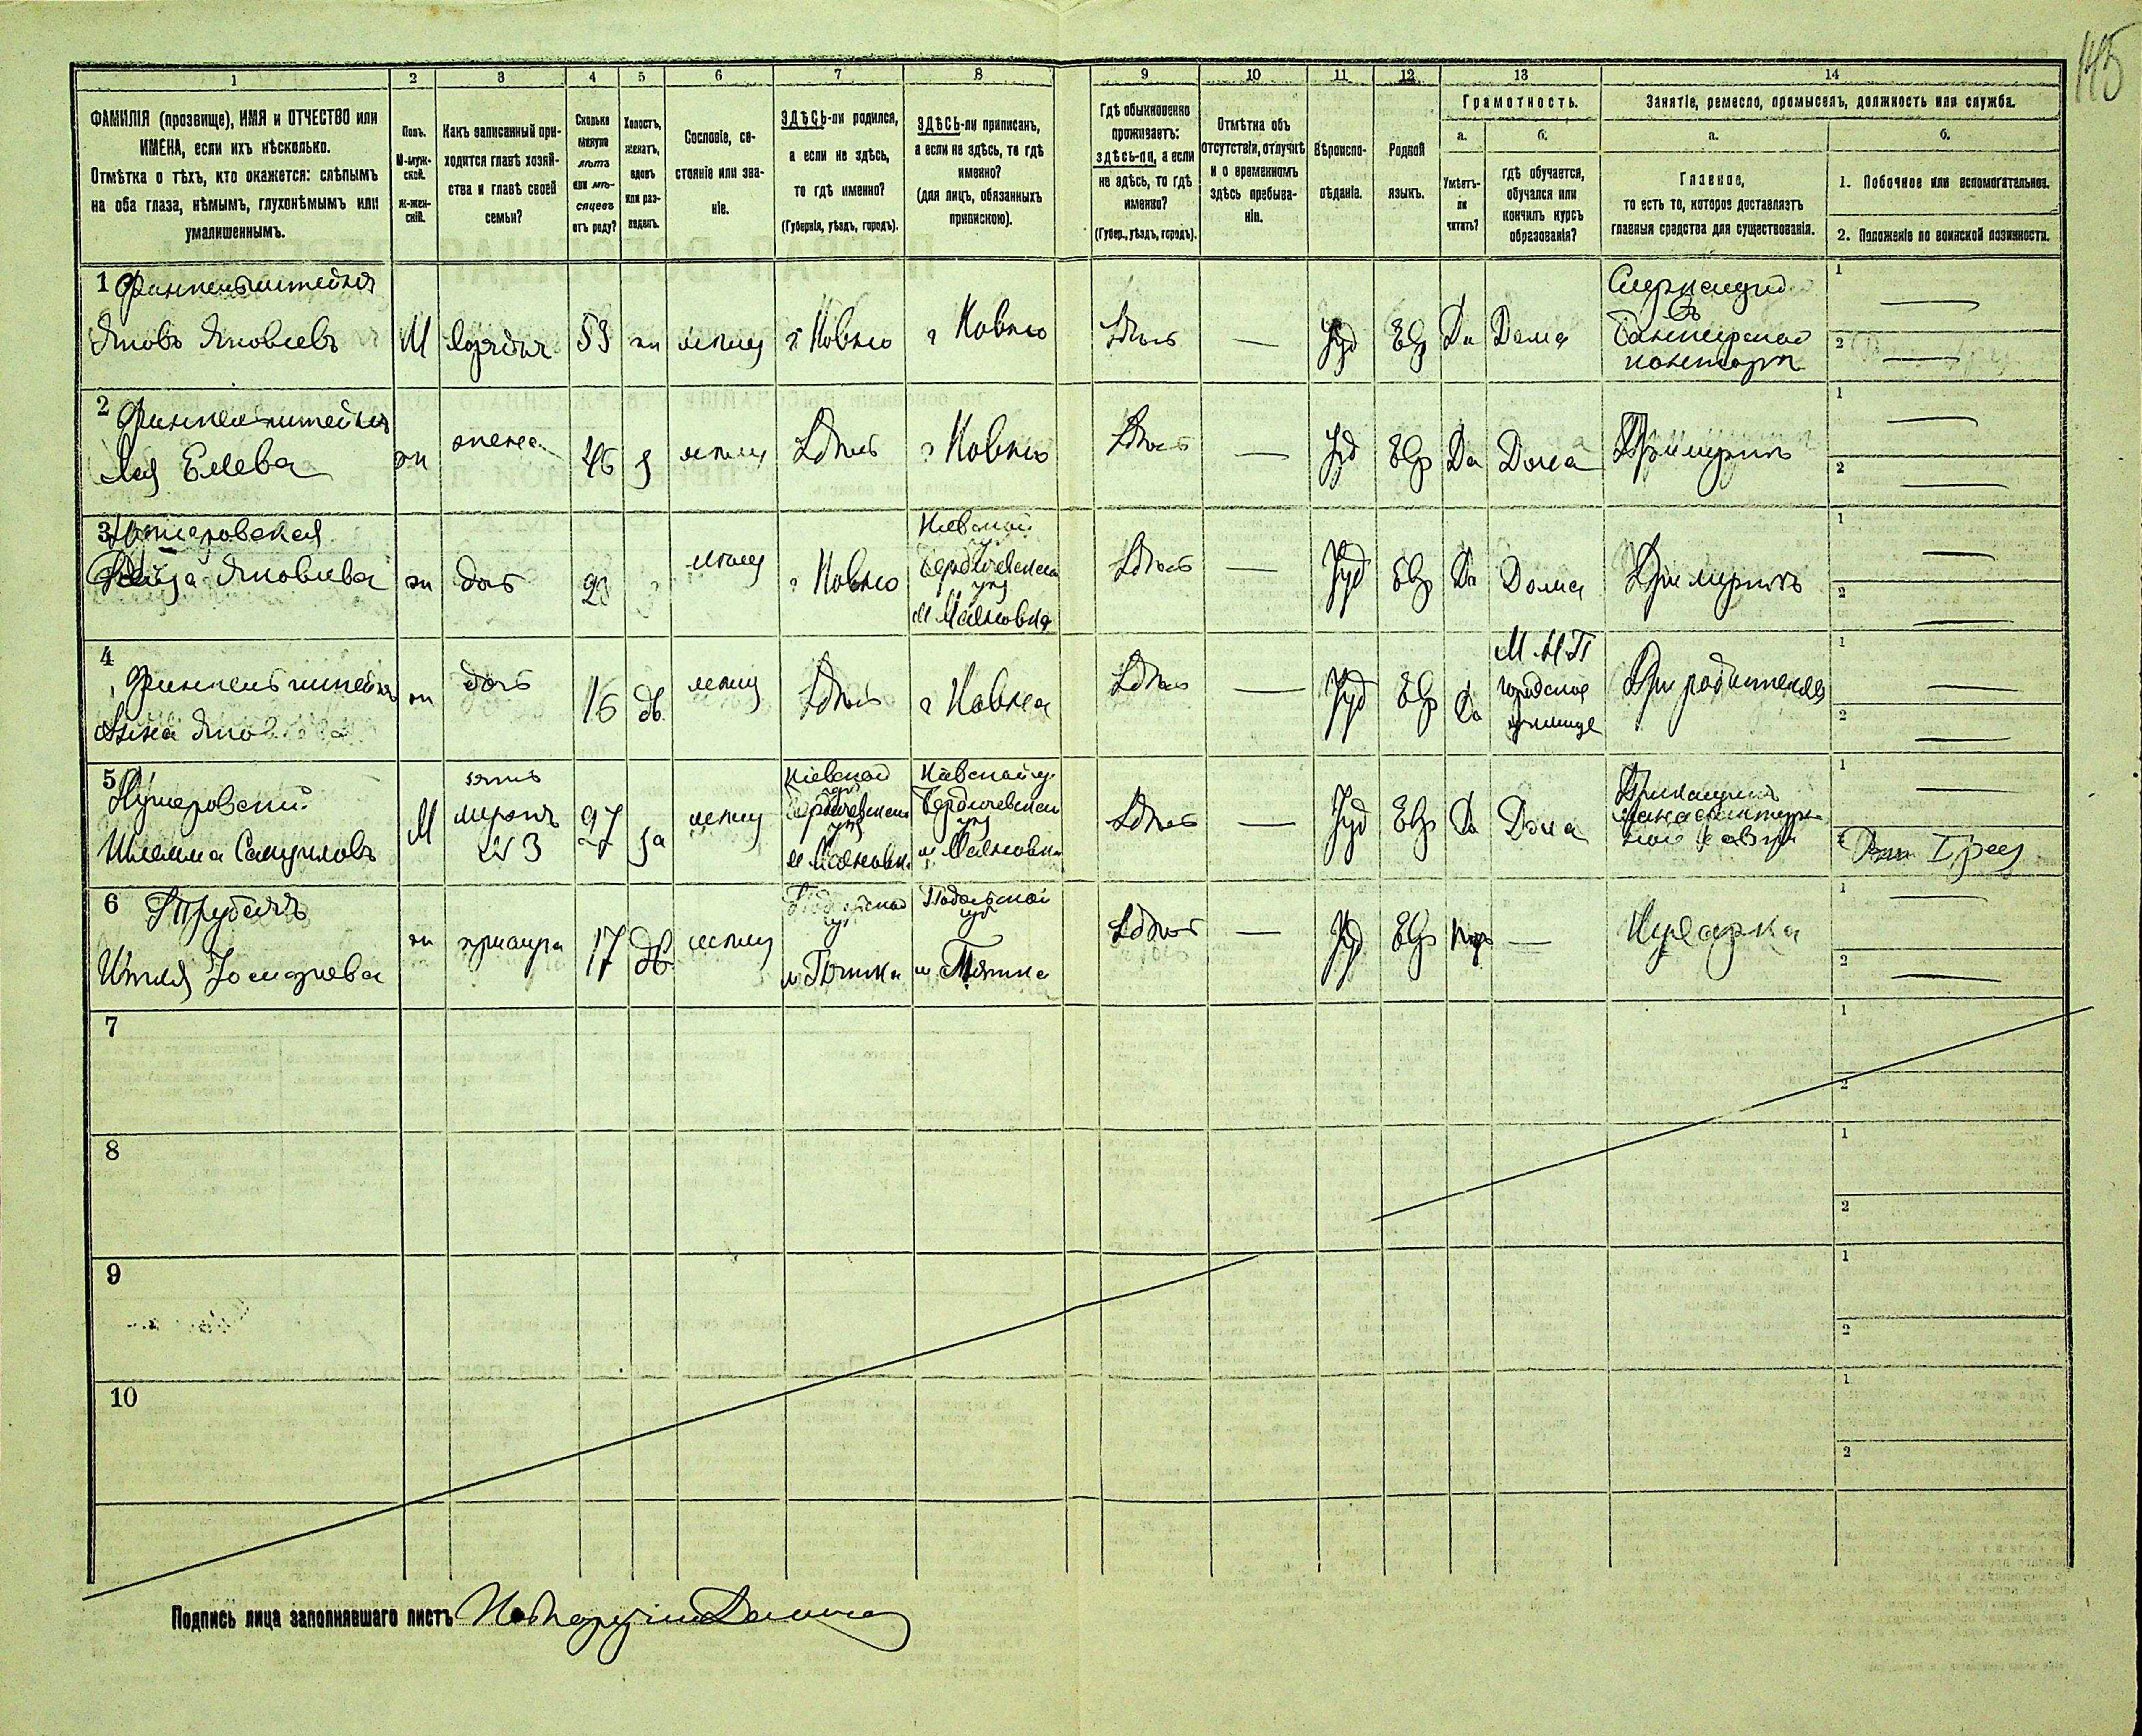 145
1
2
3
4
5
6
7
8
9
10
11
12
13
14
ФАМИЛІЯ (прозвище), ИМЯ и ОТЧЕСТВО или
ИМЕНА, если ихъ нѣсколько.
Отмѣтка о тѣхъ, кто окажется: слѣпымъ
на оба глаза, нѣмымъ, глухонѣмымъ или
умалишеннымъ.
Полъ.
М-муж-
ской.
Ж-жен-
скій.
Какъ записанный при-
ходится главѣ хозяй-
ства и главѣ своей
семьи?
Сколько
минуло
лѣтъ
или мѣ-
сяцевъ
отъ роду?
Холостъ,
женатъ,
вдовъ
или раз-
веденъ.
Сословіе, со-
стояніе или зва-
ніе.
ЗДѢСЬ-ли родился,
а если не здѣсь,
то гдѣ именно?
(Губернія, уѣздъ, городъ).
ЗДѢСЬ-ли приписанъ,
а если не здѣсь, то гдѣ
именно?
(для лицъ, обязанныхъ
припискою).
Гдѣ обыкновенно
проживаетъ:
здѣсь-ли, а если
не здѣсь, то гдѣ
именно?
(Губер., уѣздъ, городъ).
Отмѣтка объ
отсутствіи, отлучкѣ
и о временномъ
здѣсь пребыва-
ніи.
Вѣроиспо-
вѣданіе.
Родной
языкъ.
Грамотность.
а.
Умѣетъ-
ли
читать?
б.
гдѣ обучается,
обучался или
кончилъ курсъ
образованія?
Занятіе, ремесло, промыселъ, должность или служба.
а.
Главное,
то есть то, которое доставляетъ
главныя средства для существованія.
б.
1. Побочное или вспомогательное.
2. Положеніе по воинской повинности.
1 Финкельштейнъ
Яковъ Яковлевъ
М
53
г Ковно
г Ковно
Здѣсь
Іуд
Евр
Да
Дома
Служащій
въ
банкирской
конторѣ
1
2
2 Финкельштейнъ
Лея Елева
ж
жена
46
з
мѣщ
Здѣсь
г Ковно
Здѣсь
Іуд
Евр
Да
Дома
При мужѣ
1
2
3
Яковлева
ж
дочь
мѣщ
г Ковно
Кіевской
Бердичевскаго
уѣз
м
Здѣсь
Іуд
Евр
Да
Дома
При мужѣ
1
2
4
Финкельштейнъ
ж
дочь
16
дѣв.
мѣщ
Здѣсь
г Ковно
Здѣсь
Іуд
Евр
Да
М. Н. П
городское
училище
При родителяхъ
1
2
5
Шлемма
М
зять
мужъ
№ 3
27
за
мѣщ
Кіевской
губ
Бердичевскаго
уѣз
м
Кіевской гу.
Бердичевскаго
уѣз
м
Здѣсь
Іуд
Евр
Да
Дома
Прикащикъ
мануфактур-
ной лавки
1
2
Рат I раз
6 Трубекъ
ж
прислуга
17
дѣв.
мѣщ
Подольской
губ
м
Подольской
губ
м
Здѣсь
Іуд
Евр
Нѣтъ
Кухарка
1
2
7
1
2
8
1
2
9
1
2
10
1
2
Подпись лица заполнявшаго листъ